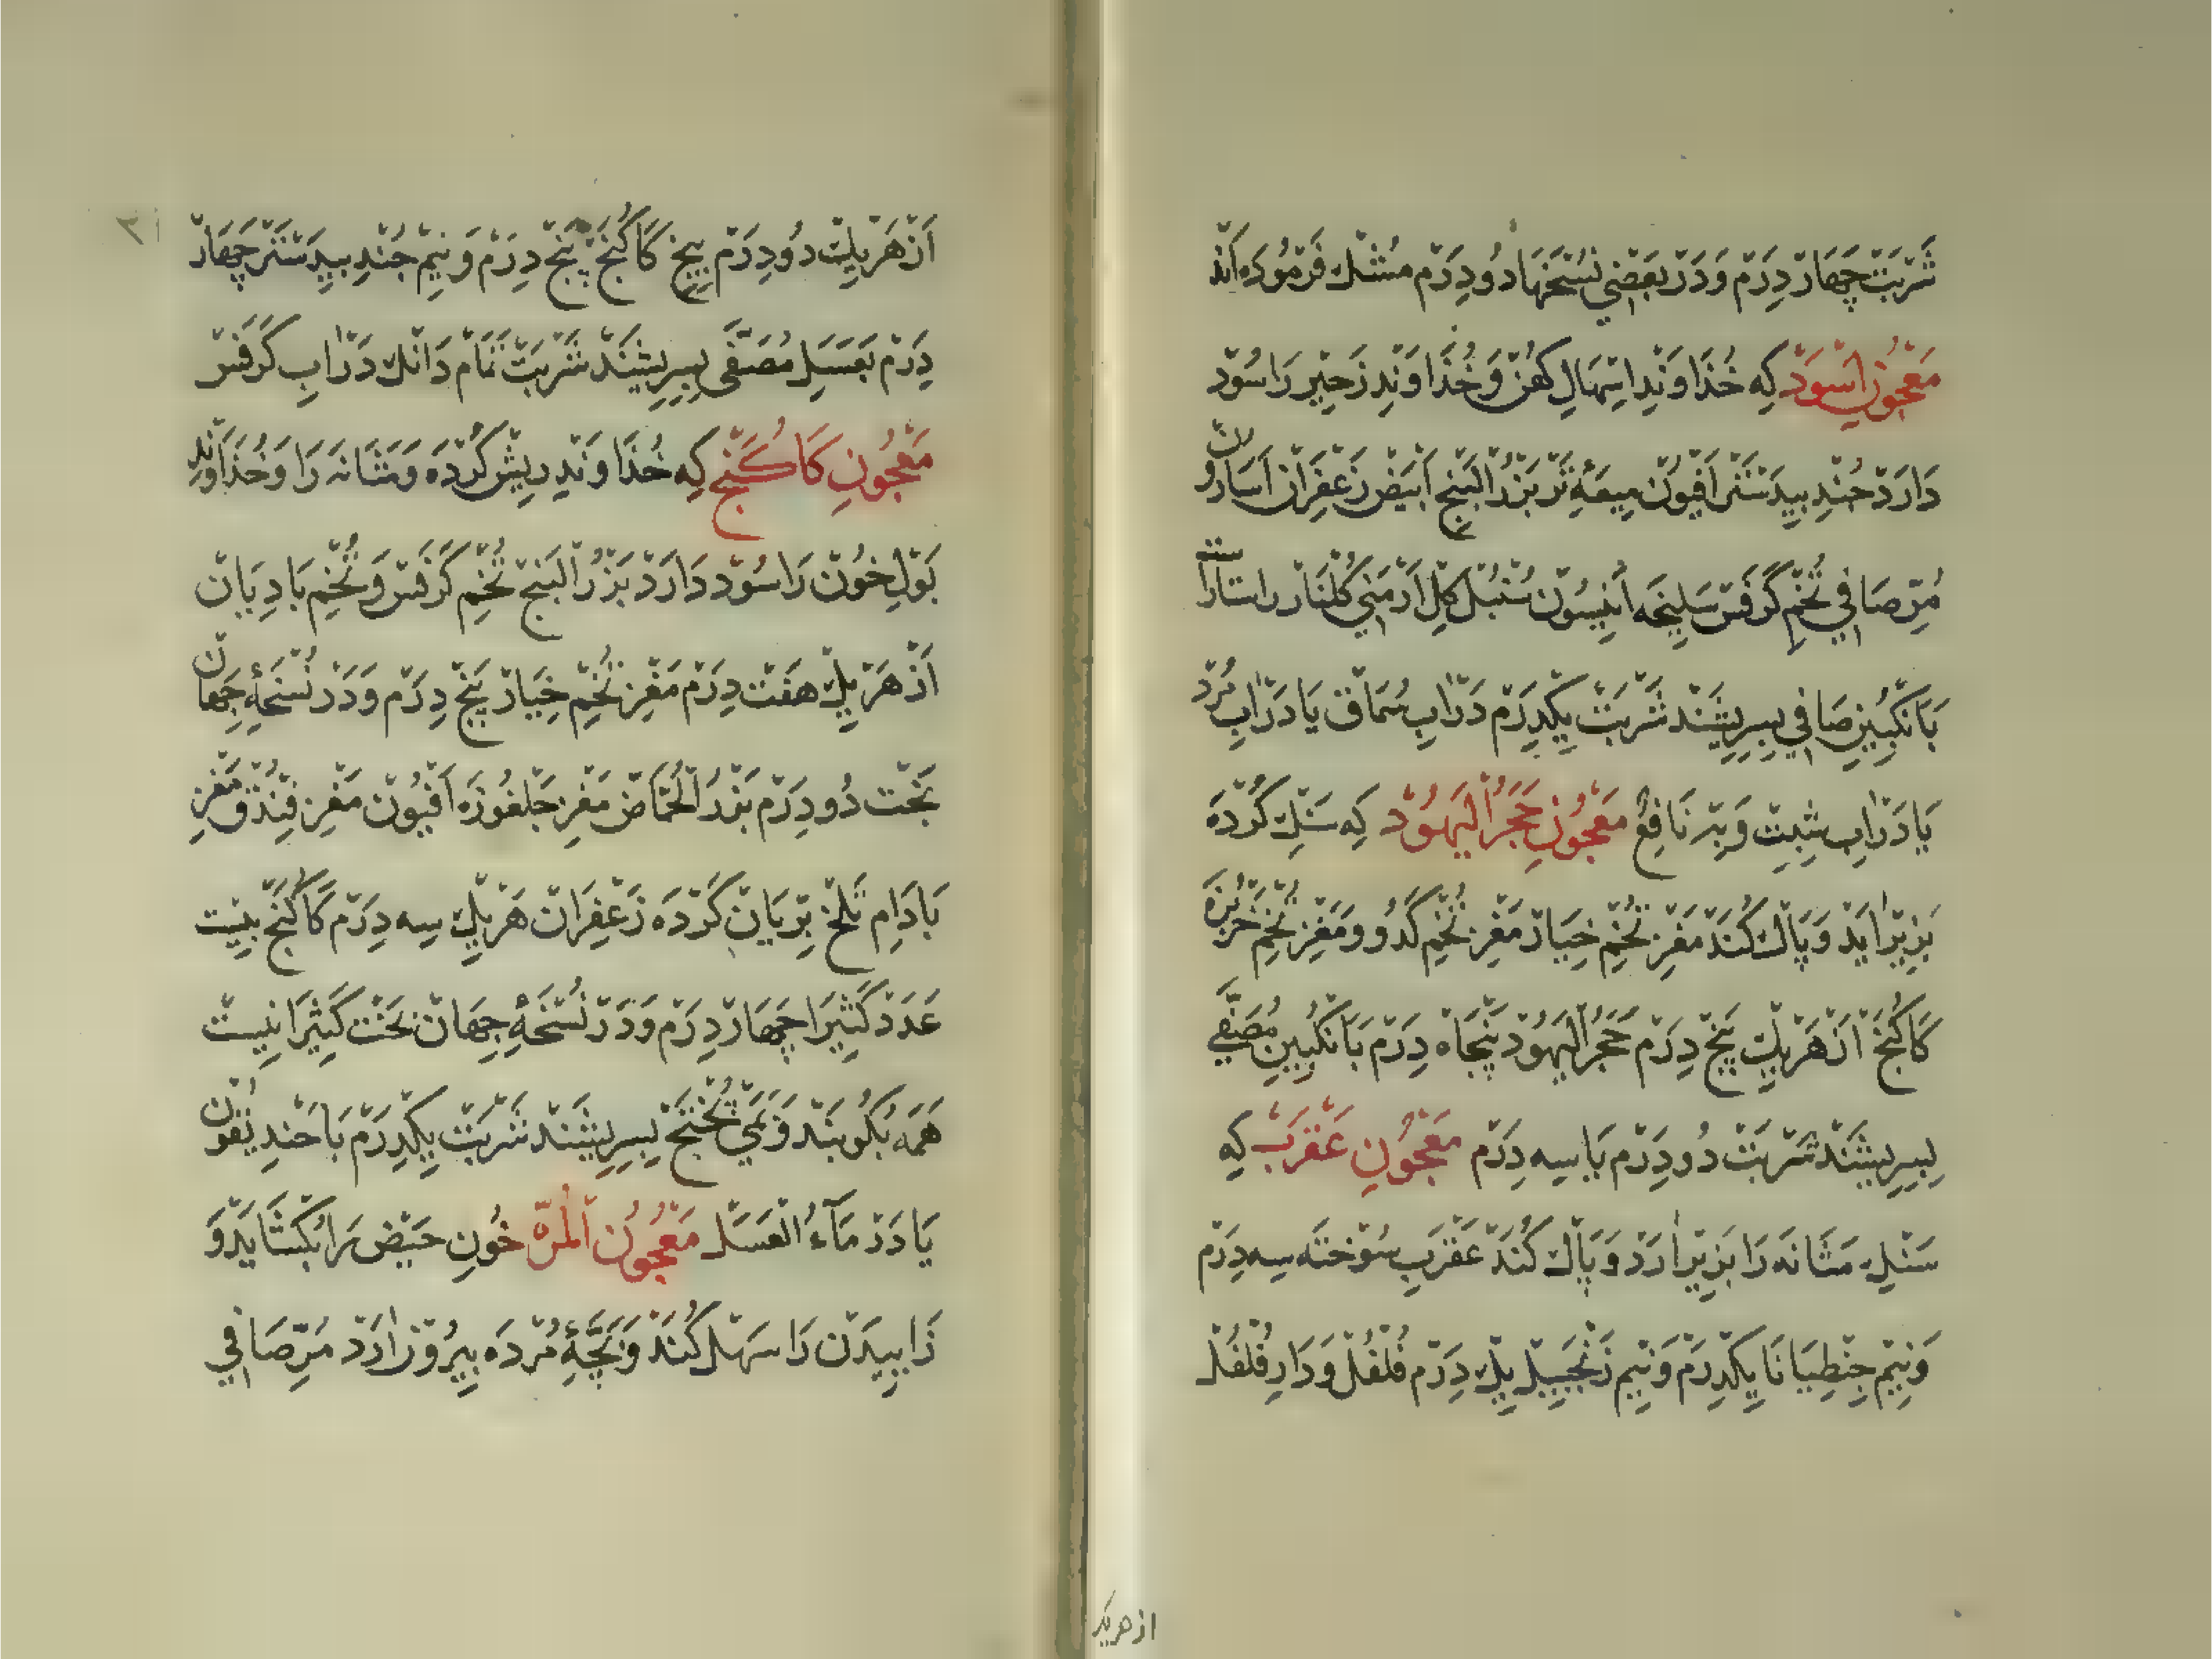 شَرْبَتْ چَهَارْ دِرَمْ وَدَرْ بَعْضِي نُسْخَتْهَا دُو دِرَمْ مُشْكْ فَرْمُودَه اَنْدْ
مَعْجُونِ اَسْوَدْ كِه خُذَاوَنْدِ اِسْهَالِ كَهُنْ وَخُذَاوَنْدِ زَحِيرْ رَا سُوْدْ
دَارَدْ جُنْدِ بِيدَسْتَرْ اَفْيُوْنْ مِيعَهِٔ تَرْ بَزْرُ الْبَنْجِ اَبْيَضْ زَعْفَرَانْ اَسَارُونْ
مُرِّ صَافِي تُخْمِ كَرَفْسْ سَلِيخَه اَنِيسُوْنْ سُنْبُلْ گِلِ اَرْمَنِي گُلْنَارْ رَاسْتَارَاسْتْ
بَاَنْگَبِينِ صَافِي بِسِرِيشَنْدْ شَرْبَتْ يِكْدِرَمْ دَرْ اٰبِ سُمَاقْ يَا دَرْ اٰبِ مُرْدْ
يَا دَرْ اٰبِ شِبِتْ وَبِتَرْ نَافِعْ مَعْجُوْنِ حَجَرُ الْيَهُوْدْ كِه سَنْگِ گُرْدَه
بَزِيرْ اٰيَدْ وَپَاكْ كُنَدْ مَغْزِ تُخْمِ خِيَارْ مَغْزِ تُخْمِ كَدُو وَمَغْزِ تُخْمِ خَرْبُزَه
كَاكُنَجْ اَزْ هَرْ يِكْ پَنْجْ دِرَمْ حَجَرُ الْيَهُوْدْ پَنْجَاهْ دِرَمْ بَاَنْگُبِينِ مُصَفّٰي
بِسِرِيشَنْدْ شَرْبَتْ دُو دِرَمْ يَا سِه دِرَمْ مَعْجُوْنِ عَقْرَبْ كِه
سَنْگِ مَثَانَه رَا بَزِيرْ اٰرَدْ وَپَاكْ كُنَدْ عَقْرَبِ سُوْخْتَه سِه دِرَمْ
وَنِيمْ جِنْطِيَانَا يِكْدِرَمْ وَنِيمْ زَنْجَبِيلْ يِكْ دِرَمْ فُلْفُلْ وَدَارِفُلْفُلْ
از هر يك
اَزْ هَرْ يِكْ دُو دِرَمْ بِيخِ كَاكُنَجْ پَنْجْ دِرَمْ وَنِيمْ جُنْدِ بِيدَسْتَرْ چَهَارْ
دِرَمْ بَعَسَلِ مُصَفّٰي بِسِرِيشَنْدْ شَرْبَتْ تَمَامْ دَانْگْ دَرْ اٰبِ كَرَفْسْ
مَعْجُوْنِ كَاكُنَجْ كِه خُذَاوَنْدِ رِيشِ گُرْدَه وَمَثَانَه رَا وَخُذَاوَنْدِ
بَوْلِ خُوْنْ رَا سُوْدْ دَارَدْ بَزْرُ الْبَنْجْ تُخْمِ كَرَفْسْ وَتُخْمِ بَادِيَانْ
اَزْ هَرْ يِكْ هَفْتْ دِرَمْ مَغْزِ تُخْمِ خِيَارْ پَنْجْ دِرَمْ وَدَرْ نُسْخَهِٔ جِهَانْ
بَخْتْ دُو دِرَمْ بَزْرُ الْحُمَّاضْ مَغْزِ جَلْغُوْزَه اَفْيُوْنْ مَغْزِ فِنْدُقْ وَمَغْزِ
بَادَامِ تَلْخْ بِرْيَانْ كَرْدَه زَعْفَرَانْ هَرْ يِكْ سِه دِرَمْ كَاكُنَجْ بِيسْتْ
عَدَدْ كَثِيرَا چَهَارْ دِرَمْ وَدَرْ نُسْخَهِٔ جِهَانْ بَخْتْ كَثِيرَا نِيسْتْ
هَمَه بُكُوبَنْدْ وَبَمَيْ پُخْتَجْ بِسِرِيشَنْدْ شَرْبَتْ يِكْدِرَمْ بَاخَنْدِيقُوْنْ
يَا دَرْ مَآءُ الْعَسَلْ مَعْجُوْنُ الْمُرّْ خُوْنِ حَيْضْ رَا بُكْشَايَدْ وَ
زَايِيدَنْ رَا سَهْلْ كُنَدْ وَبَچَّهِٔ مُرْدَه بِيرُوْنْ اٰرَدْ مُرِّ صَافِي